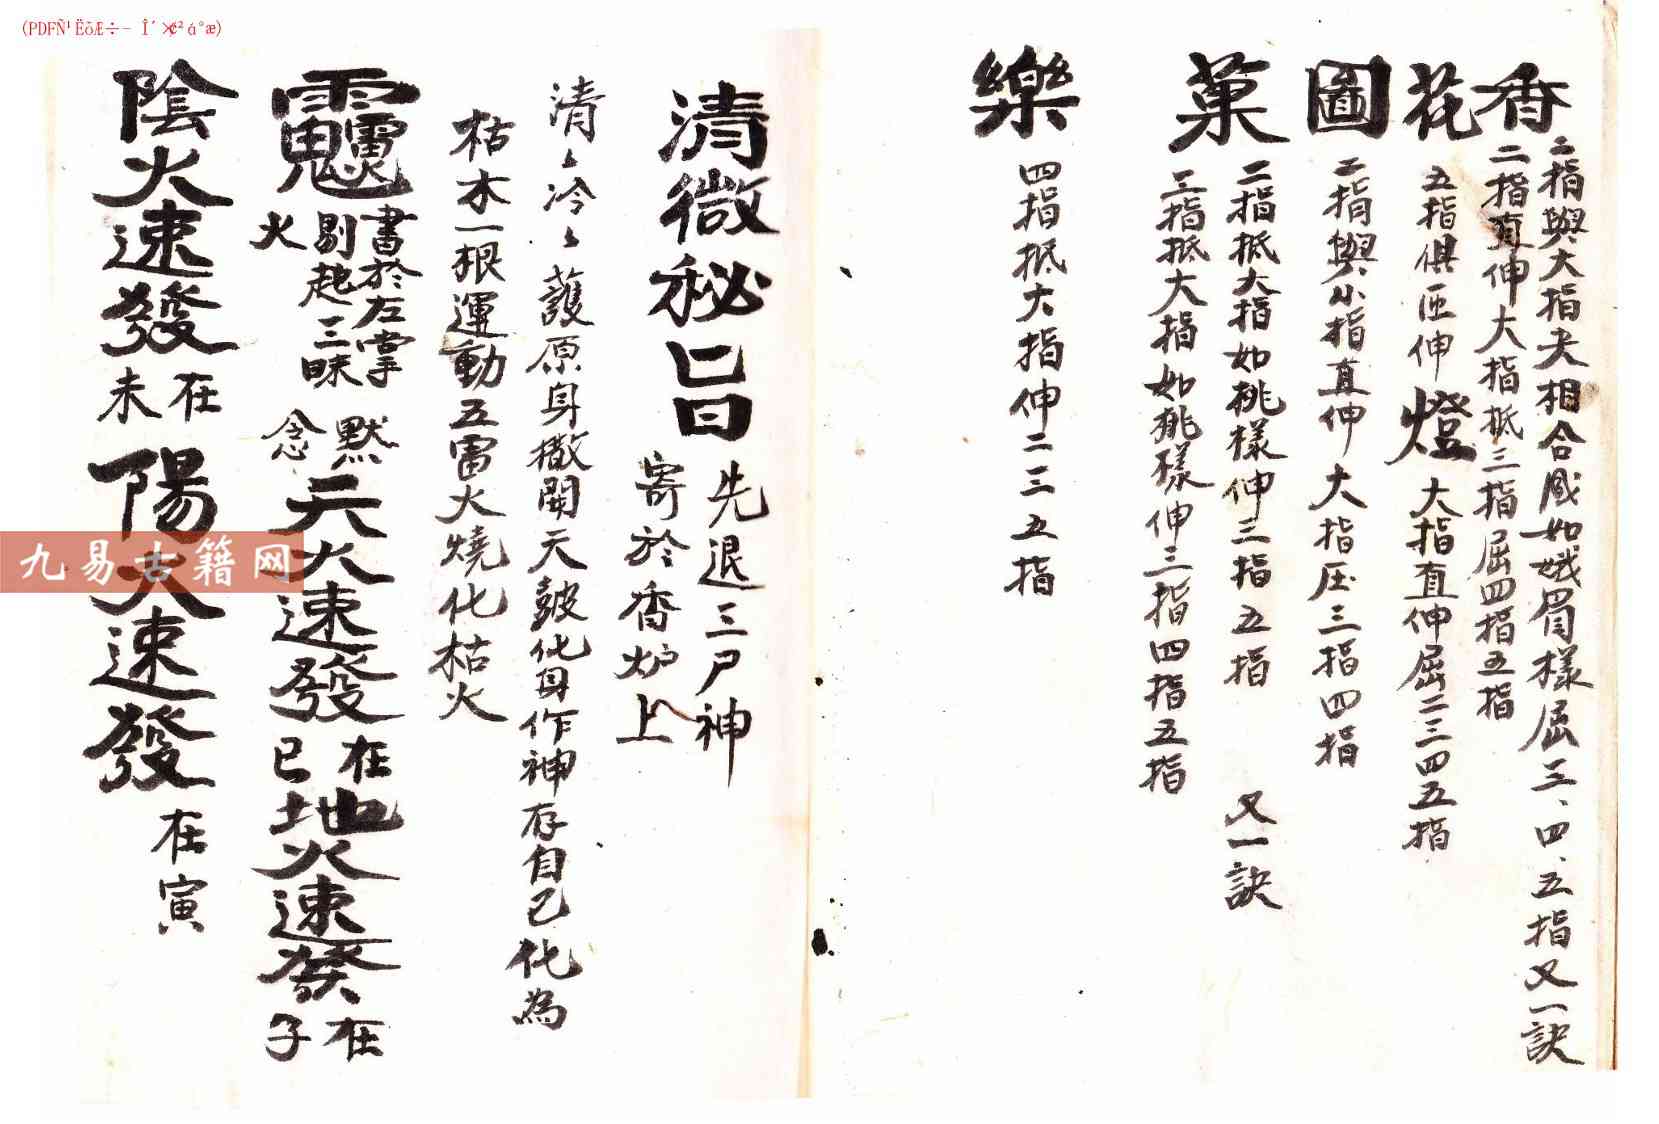 (PDFÑ¹ËõÆ÷- Î´×¢²á°æ)
香 二指與大指尖相合咸如娥眉樣屈三、四、五指又一訣
二指直伸大指抵三指屈四指五指
花 五指俱叵伸 燈 大指直伸屈二三四五指
圖 二指與小指直伸大指压三指四指
菓 二指抵大指如挑樣伸三指五指 又一訣
二指抵大指如挑樣伸三指四指五指
樂 四指抵大指伸二三五指
清微秘旨 先退三尸神
寄於香炉上
清〻冷〻護原身撒開天皷化身作神存自己化為
枯木一根運動五雷火燒化枯火
書於左掌
剔起三昧
火 默念 天火速發 在巳 地火速發 在子
陰火速發 在未 陽火速發 在寅
九易古籍网